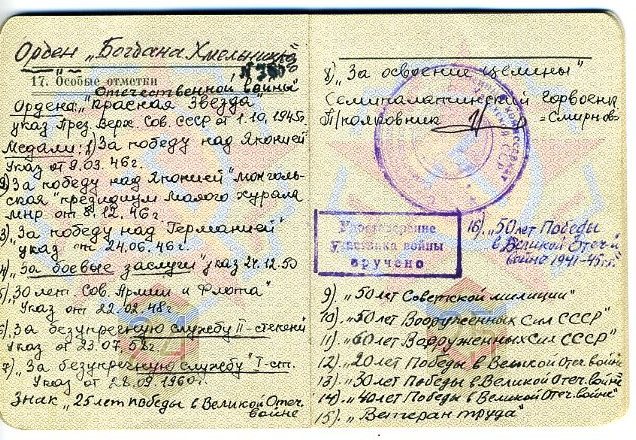 Орден „Богдана Хмельницкого
17. Особые отметки
„Отечественной войны"
Ордена „Красная Звезда
указ През. Верх. Сов. СССР от 1.10.1945г.
Медали: 1) За победу над Японией
Указ от 9.03.46г.
2) За победу над Японией" монголь-
ская" президиум малого хурала
МНР от 8.12.46г.
3) За победу над Германией"
указ от 24.06.46г.
4) „За боевые заслуги" указ 24.12.50
5) „30 лет Сов. Армии и Флота"
Указ от 22.02.48г.
6) „За безупречную службу II-степени
Указ от 23.07.58г.
7) „За безупречную службу" I-ст.
Указ от 28.09.1960г.
Знак „25 лет победы в Великой Отеч.
войне
8) „За освоение целины"
Семипалатинский Горвоенк
П/полковник = Смирнов
Удостоверение
участника войны
вручено
16) „50 лет Победы
в Великой Отеч.
войне 1941-45г.г."
9) „50 лет Советской милиции"
10) „50 лет Вооруженных Сил СССР"
11) „60 лет Вооруженных Сил СССР"
12) „20 лет Победы в Великой Отеч. войне
13) „30 лет Победы в Великой Отеч. войне
14) „40 лет Победы в Великой Отеч. войне"
15) „Ветеран труда"